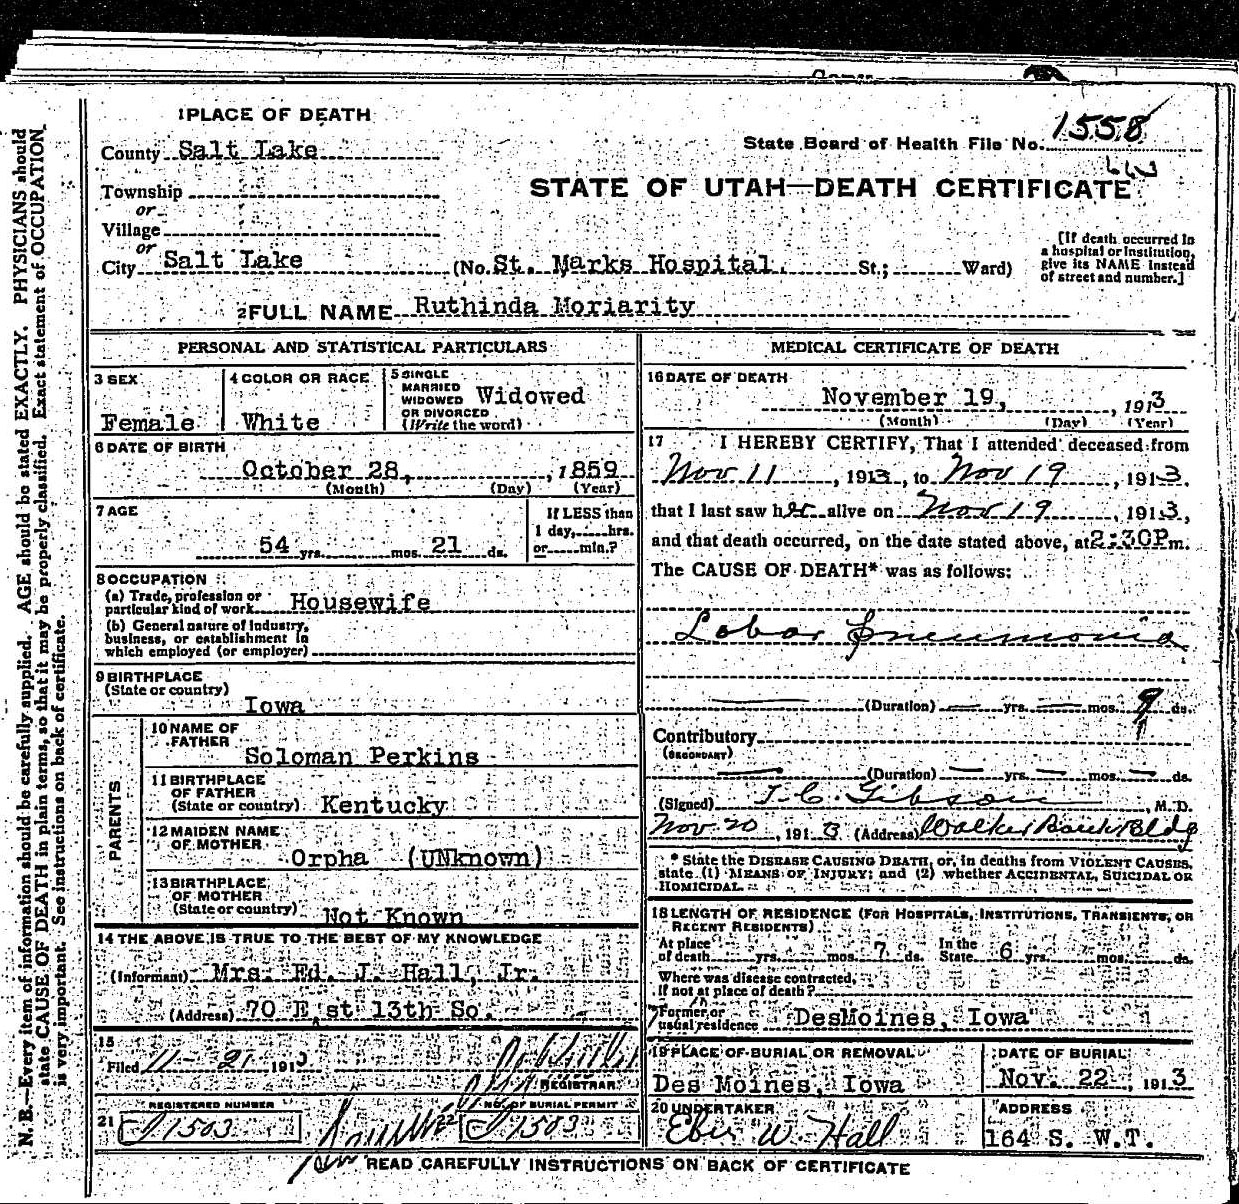 1 PLACE OF DEATH
County Salt Lake
State Board of Health File No. 1558
Township
or
Village
or
City Salt Lake (No. St. Marks Hospital. St.; Ward)
STATE OF UTAH—DEATH CERTIFICATE
[If death occurred in
a hospital or institution,
give its NAME instead
of street and number.]
2 FULL NAME Ruthinda Moriarity
PERSONAL AND STATISTICAL PARTICULARS
3 SEX Female
4 COLOR OR RACE White
5 SINGLE
MARRIED
WIDOWED
OR DIVORCED
(Write the word)
Widowed
6 DATE OF BIRTH
October 28, , 1859
(Month) (Day) (Year)
7 AGE
54 yrs. mos. 21 ds.
If LESS than
1 day, hrs.
or min.?
8 OCCUPATION
(a) Trade, profession or
particular kind of work Housewife
(b) General nature of Industry,
business, or establishment in
which employed (or employer)
9 BIRTHPLACE
(State or country)
Iowa
PARENTS
10 NAME OF
FATHER
Soloman Perkins
11 BIRTHPLACE
OF FATHER
(State or country) Kentucky
12 MAIDEN NAME
OF MOTHER
Orpha (UNknown)
13 BIRTHPLACE
OF MOTHER
(State or country) Not Known
14 THE ABOVE IS TRUE TO THE BEST OF MY KNOWLEDGE
(Informant) Mrs. Ed. J. Hall, Jr.
(Address) 70 E st 13th So.
15
Filed 11-21 1913
REGISTRAR
REGISTERED NUMBER
21 J1503
NO. OF BURIAL PERMIT
22 J1503
MEDICAL CERTIFICATE OF DEATH
16 DATE OF DEATH
November 19, , 1913
(Month) (Day) (Year)
17 I HEREBY CERTIFY, That I attended deceased from
Nov 11 , 1913, to Nov 19 , 1913.
that I last saw her alive on Nov 19 , 1913,
and that death occurred, on the date stated above, at 2:30P m.
The CAUSE OF DEATH* was as follows:
Lobar Pneumonia
(Duration) yrs. mos. 9 ds.
Contributory
(SECONDARY)
(Duration) yrs. mos. ds.
(Signed) T. C. Gibson , M. D.
Nov 20 , 1913 (Address) Walker Bank Bldg
* State the DISEASE CAUSING DEATH, or, in deaths from VIOLENT CAUSES,
state (1) MEANS OF INJURY; and (2) whether ACCIDENTAL, SUICIDAL OR
HOMICIDAL.
18 LENGTH OF RESIDENCE (FOR HOSPITALS, INSTITUTIONS, TRANSIENTS, OR
RECENT RESIDENTS)
At place
of death yrs. mos. 7 ds.
In the
State 6 yrs. mos. ds.
Where was disease contracted,
If not at place of death?
Former or
usual residence DesMoines, Iowa
19 PLACE OF BURIAL OR REMOVAL
Des Moines, Iowa
DATE OF BURIAL
Nov. 22 , 1913
20 UNDERTAKER
Eber W. Hall
ADDRESS
164 S. W.T.
READ CAREFULLY INSTRUCTIONS ON BACK OF CERTIFICATE
N. B.—Every item of information should be carefully supplied. AGE should be stated EXACTLY. PHYSICIANS should
state CAUSE OF DEATH in plain terms, so that it may be properly classified. Exact statement of OCCUPATION
is very important. See instructions on back of certificate.